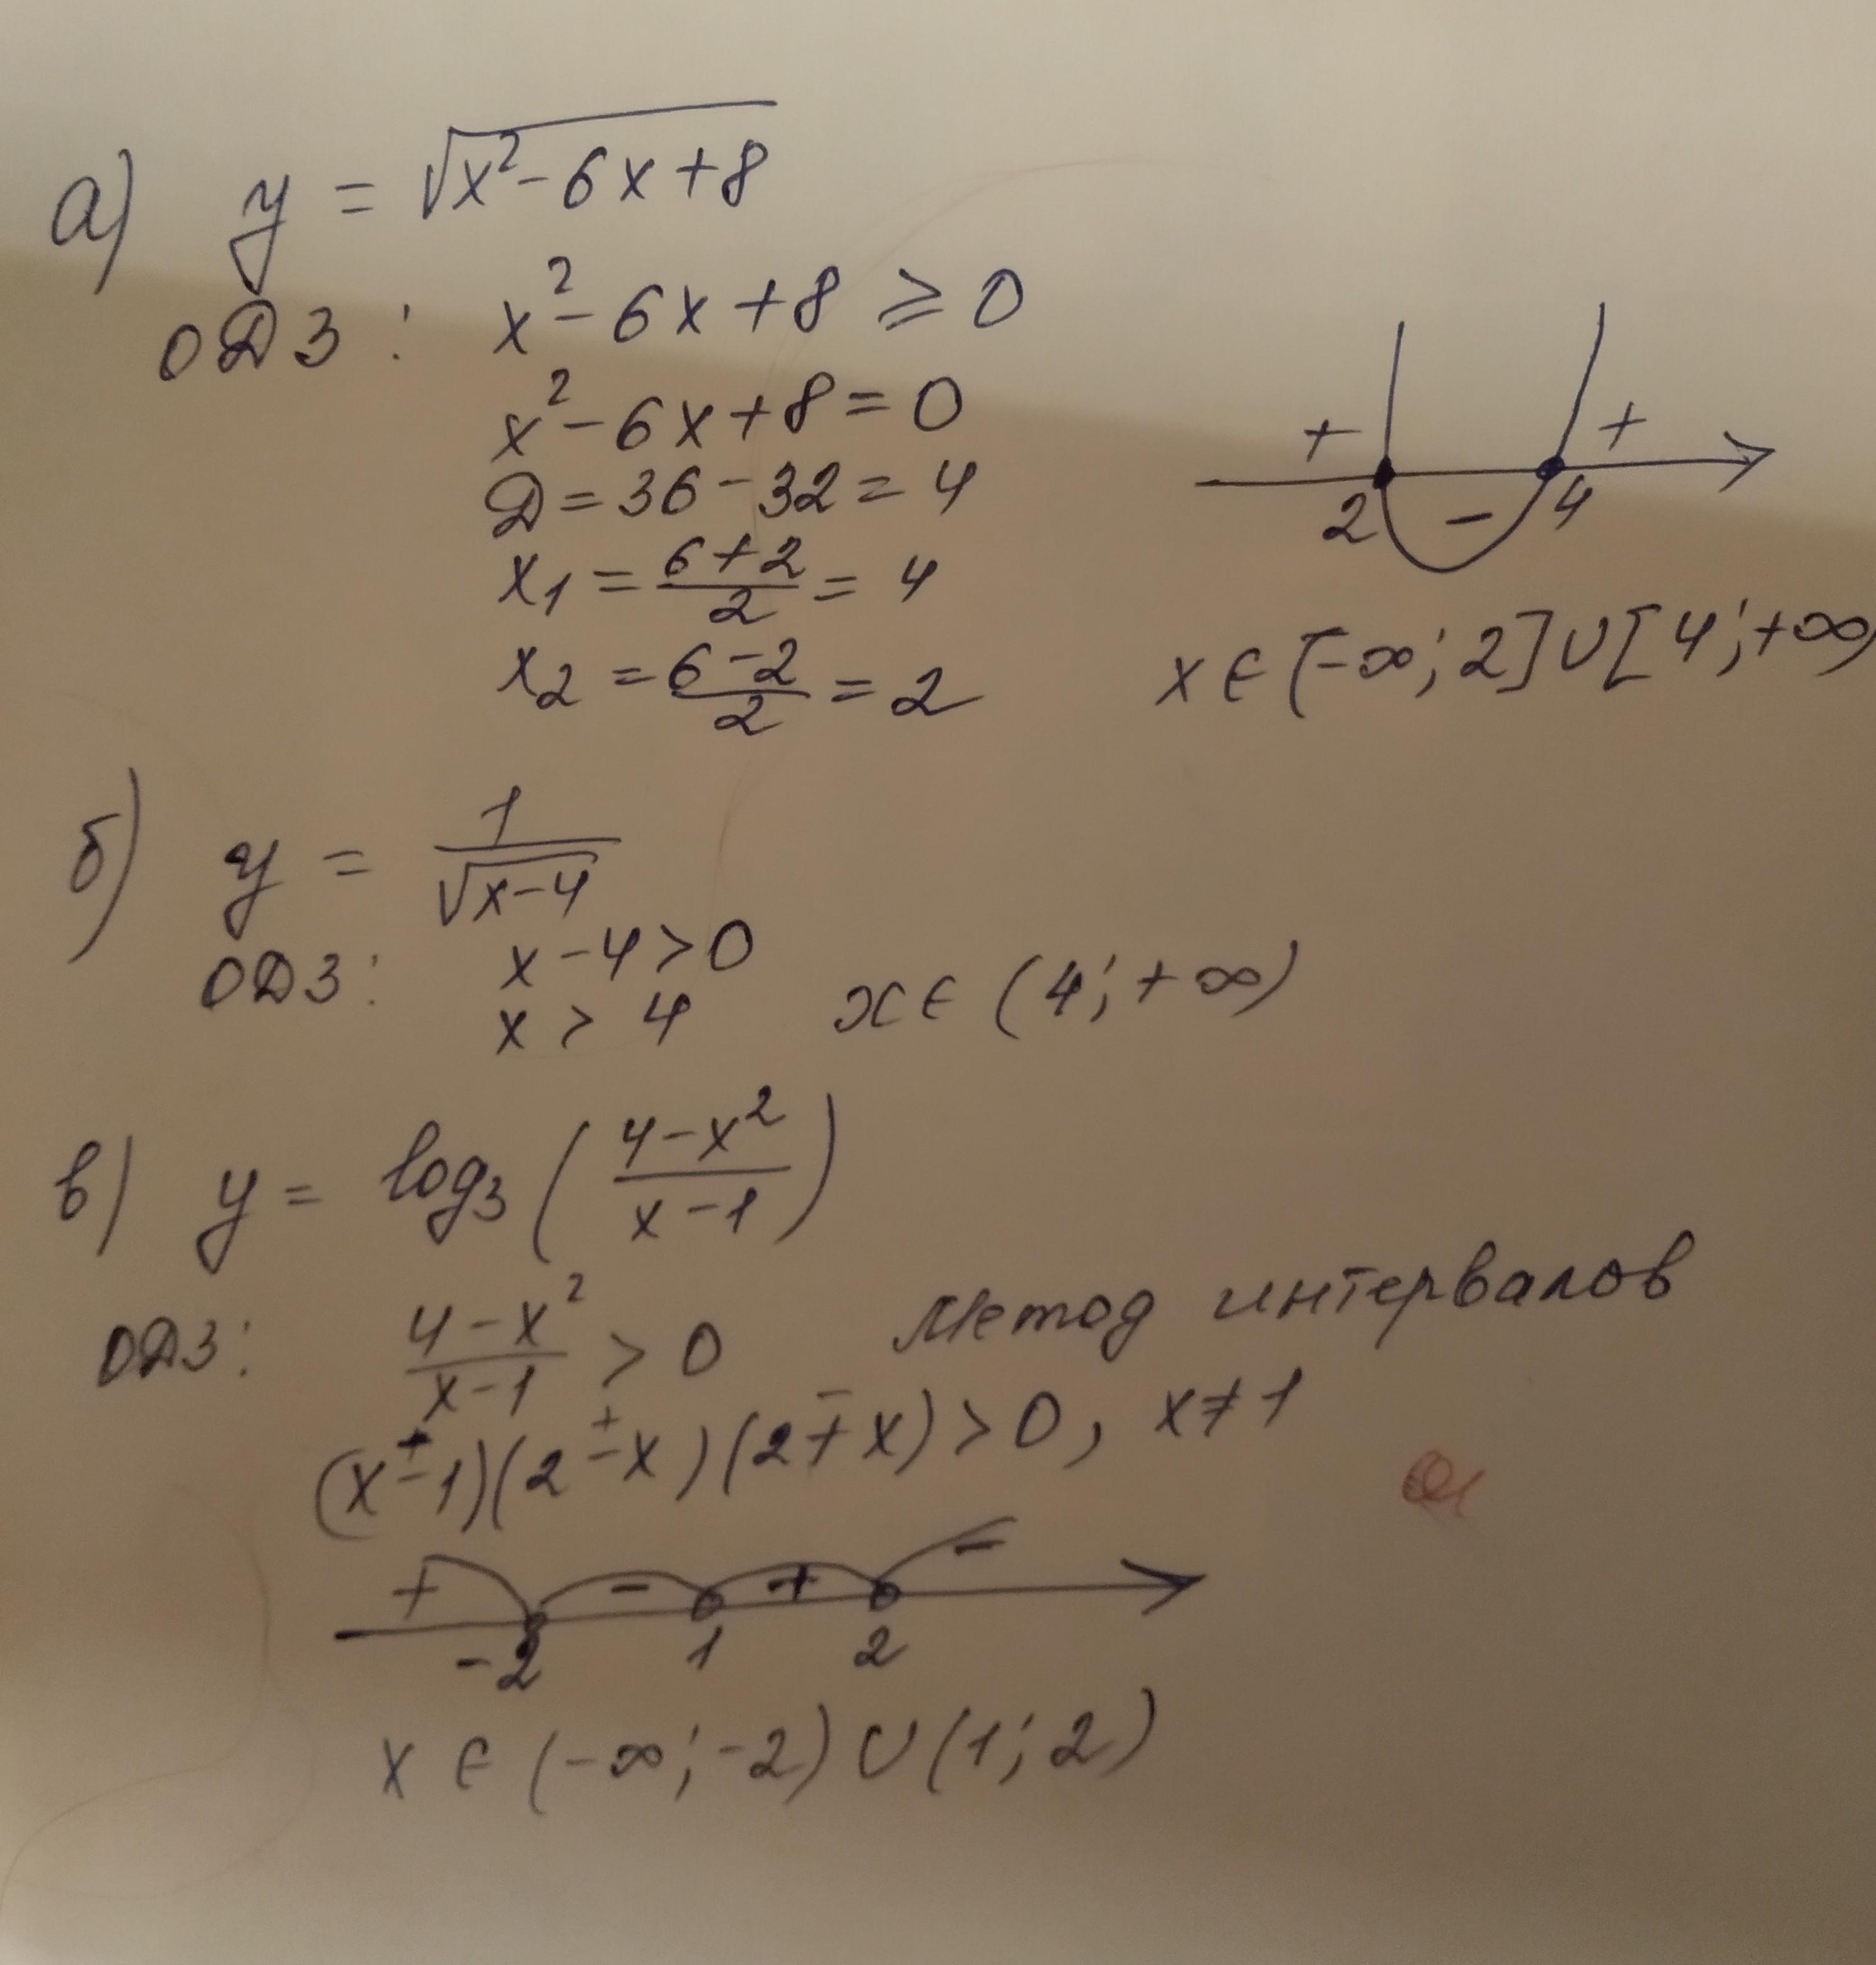 а) y = √x²-6x+8
ОДЗ: x²-6x+8 ⩾ 0
x²-6x+8=0
D=36-32=4
x₁ = (6+2)/2 = 4
x₂ = (6-2)/2 = 2
+ + 
2 - 4
x ∈ [-∞; 2]∪[4; +∞)
б) y = 1/√x-4
ОДЗ: x-4>0
x > 4 x ∈ (4; +∞)
в) y = log₃((4-x²)/(x-1))
ОДЗ: (4-x²)/(x-1) > 0 Метод интервалов
+ + -
(x-1)(2-x)(2+x)>0, x≠1
+ - + -
-2 1 2
x ∈ (-∞; -2)∪(1; 2)